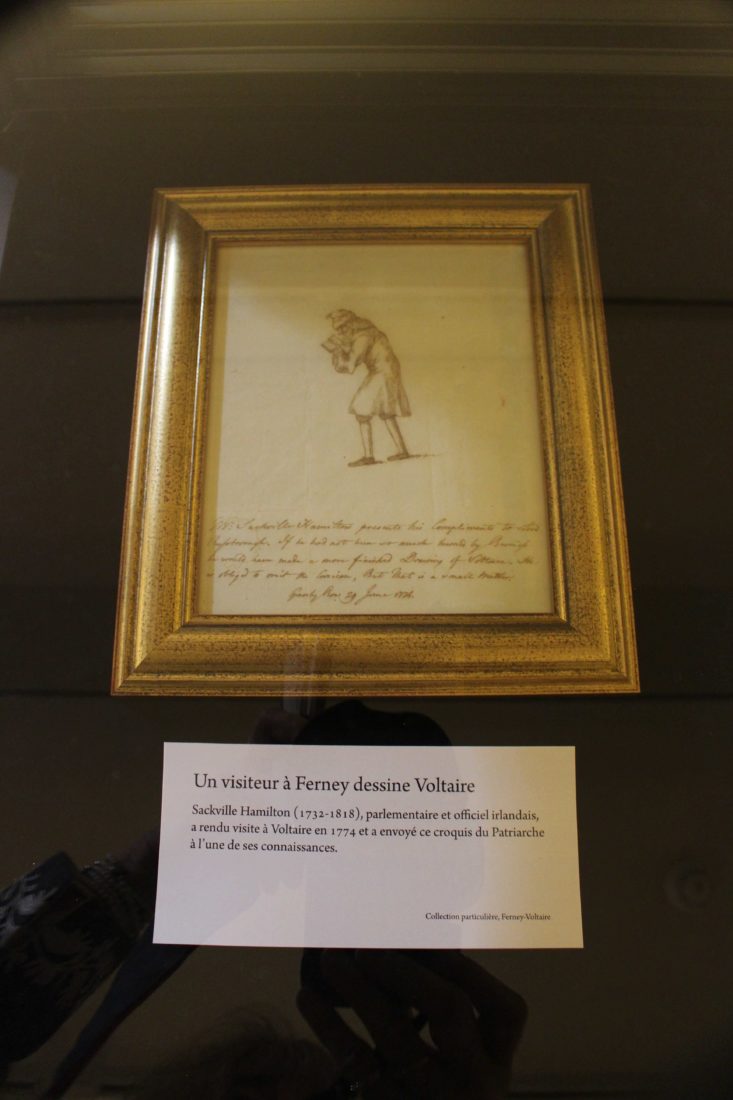 Mr. Sackville Hamilton presents his Compliments to Lord
If he had not been so much hurried by
he would have made a more finished Drawing of Voltaire. He
is oblig'd to omit the , But that is a small matter.
Row 29 June
Un visiteur à Ferney dessine Voltaire
Sackville Hamilton (1732-1818), parlementaire et officiel irlandais,
a rendu visite à Voltaire en 1774 et a envoyé ce croquis du Patriarche
à l'une de ses connaissances.
Collection particulière, Ferney-Voltaire